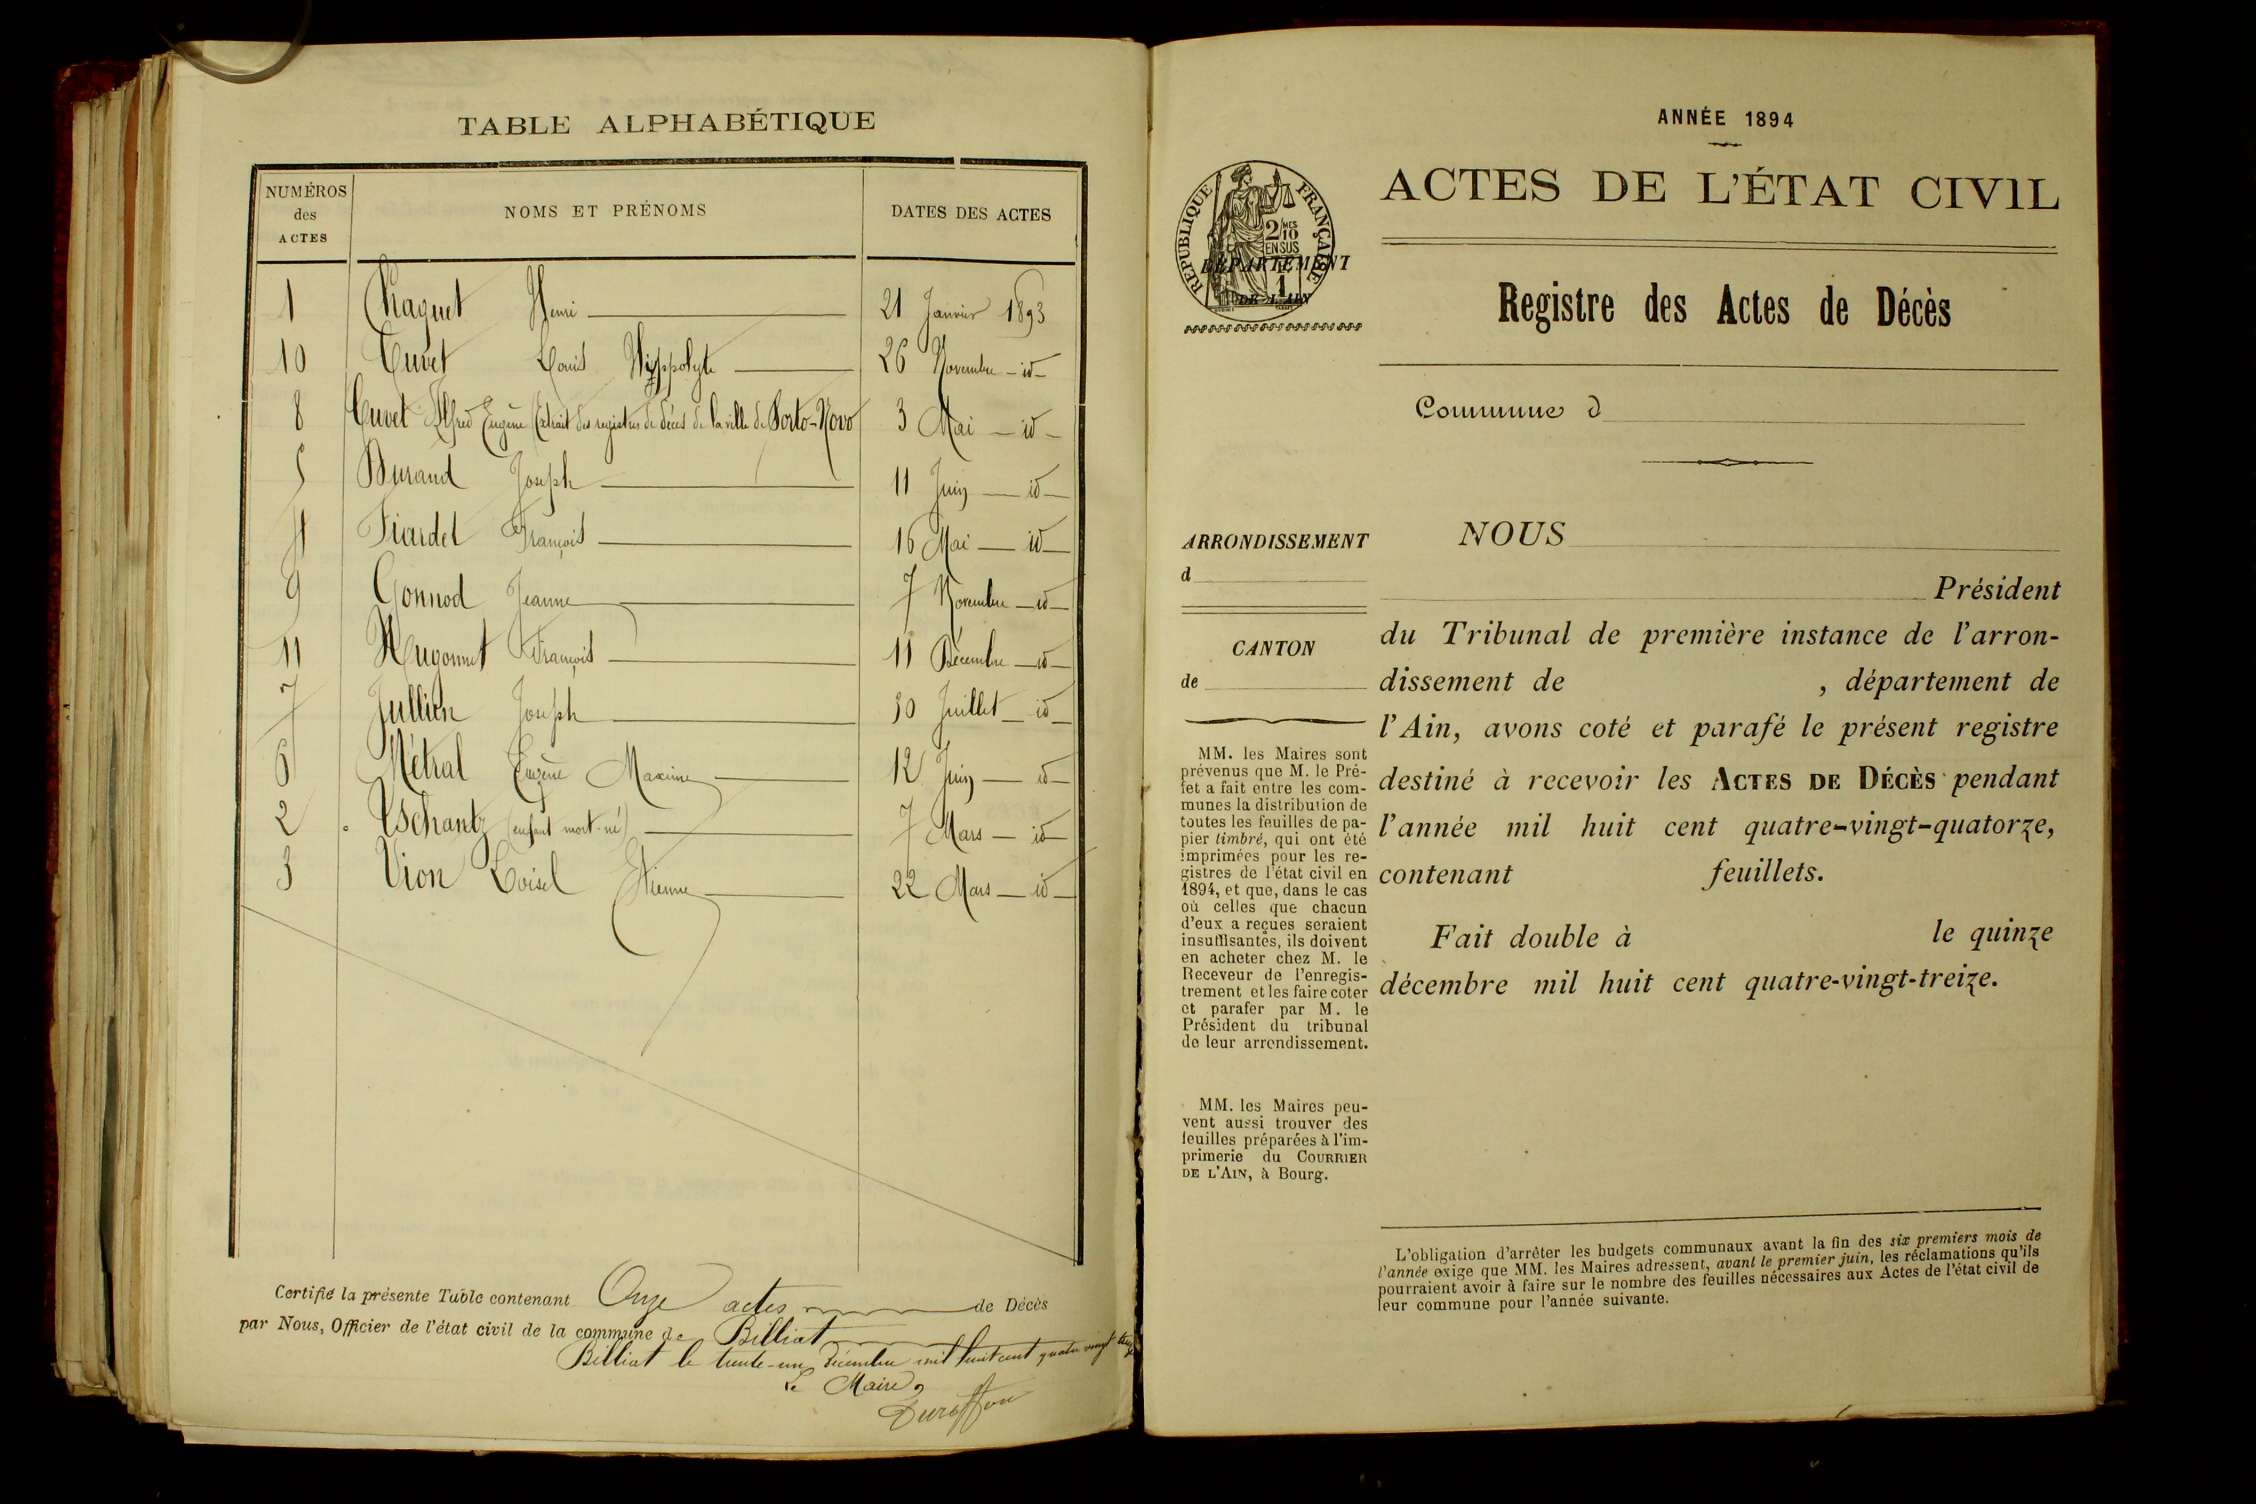 TABLE ALPHABÉTIQUE
NUMÉROS des ACTES
NOMS ET PRÉNOMS
DATES DES ACTES
1 Chaguet Henri 21 Janvier 1893
10 Cuvet Louis Hippolyte 26 Novembre id
8 Cuvet Alfred Eugène (Extrait des registres de décès de la ville de Porto-Novo 3 Mai id
5 Durand Joseph 11 Juin id
4 Fiardet François 16 Mai id
9 Gonnod Jeanne 7 Novembre id
11 Hugonnet François 11 Décembre id
7 Jullien Joseph 30 Juillet id
6 Métral Eugène Maxime 12 Juin id
2 Tschantz (enfant mort-né) 7 Mars id
3 Vion Loisel Etienne 22 Mars id
Certifié la présente Table contenant Onze actes de Décès
par Nous, Officier de l'état civil de la commune de Billiat
Billiat le trente-un Décembre mil huit cent quatre vingt treize
Le Maire,
ANNÉE 1894
ACTES DE L'ÉTAT CIVIL
RÉPUBLIQUE FRANÇAISE
2/10 MES
EN SUS
DÉPARTEMENT
1
DE L'AIN
Registre des Actes de Décès
Commune d
ARRONDISSEMENT
d
CANTON
de
MM. les Maires sont
prévenus que M. le Pré-
fet a fait entre les com-
munes la distribution de
toutes les feuilles de pa-
pier timbré, qui ont été
imprimées pour les re-
gistres de l'état civil en
1894, et que, dans le cas
où celles que chacun
d'eux a reçues seraient
insuffisantes, ils doivent
en acheter chez M. le
Receveur de l'enregis-
trement et les faire coter
et parafer par M. le
Président du tribunal
de leur arrondissement.
MM. les Maires peu-
vent aussi trouver des
feuilles préparées à l'im-
primerie du COURRIER
DE L'AIN, à Bourg.
NOUS
Président
du Tribunal de première instance de l'arron-
dissement de , département de
l'Ain, avons coté et parafé le présent registre
destiné à recevoir les ACTES DE DÉCÈS pendant
l'année mil huit cent quatre-vingt-quatorze,
contenant feuillets.
Fait double à le quinze
décembre mil huit cent quatre-vingt-treize.
L'obligation d'arrêter les budgets communaux avant la fin des six premiers mois de
l'année exige que MM. les Maires adressent, avant le premier juin, les réclamations qu'ils
pourraient avoir à faire sur le nombre des feuilles nécessaires aux Actes de l'état civil de
leur commune pour l'année suivante.